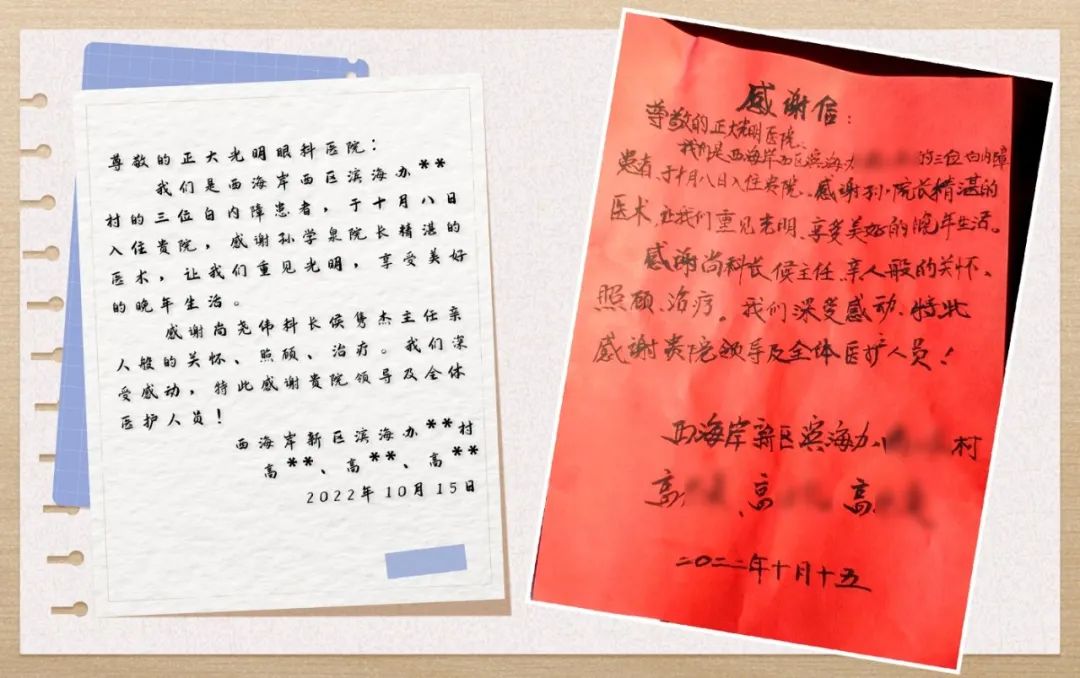 尊敬的正大光明眼科医院：
我们是西海岸西区滨海办**
村的三位白内障患者，于十月八日
入住贵院，感谢孙学泉院长精湛的
医术，让我们重见光明，享受美好
的晚年生治。
感谢尚尧伟科长侯隽杰主任亲
人般的关怀、照顾、治疗。我们深
受感动，特此感谢贵院领导及全体
医护人员！
西海岸新区滨海办**村
高**、高**、高**
2022年10月15日
感谢信：
尊敬的正大光明医院、
我们是西海岸西区滨海办的三位白内障
患者，于十月八日入住贵院、感谢孙院长精湛的
医术，让我们重见光明、享受美好的晚年生活。
感谢尚科长候主任、亲人般的关怀、
照顾、治疗。我们深受感动、特此
感谢贵院领导及全体医护人员！
西海岸新区滨海办村
高、高、高
二〇二二年十月十五